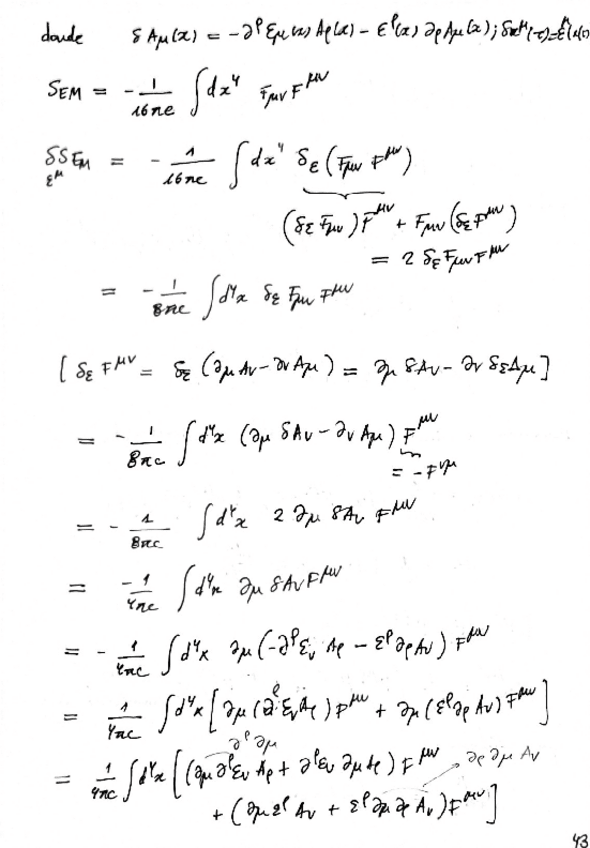 donde δAμ(x) = -∂^ρ εμ(x) Aρ(x) - ε^ρ(x) ∂ρ Aμ(x); δx^μ(τ) = ε^μ(x(τ))
S_EM = - 1/16πc ∫dx⁴ Fμν F^μν
δS_EM = - 1/16πc ∫dx⁴ δε (Fμν F^μν)
ε^μ
(δε Fμν) F^μν + Fμν (δε F^μν)
= 2 δε Fμν F^μν
= - 1/8πc ∫d⁴x δε Fμν F^μν
[ δε F^μν = δε (∂μ Aν - ∂ν Aμ) = ∂μ δAν - ∂ν δε Aμ ]
= - 1/8πc ∫d⁴x (∂μ δAν - ∂ν Aμ) F^μν
= - F^νμ
= - 1/8πc ∫d⁴x 2 ∂μ δAν F^μν
= -1/4πc ∫d⁴x ∂μ δAν F^μν
= - 1/4πc ∫d⁴x ∂μ (-∂^ρ εν Aρ - ε^ρ ∂ρ Aν) F^μν
= 1/4πc ∫d⁴x [ ∂μ (∂^ρ εν Aρ) F^μν + ∂μ (ε^ρ ∂ρ Aν) F^μν ]
∂^ρ ∂μ
= 1/4πc ∫d⁴x [ (∂μ ∂^ρ εν Aρ + ∂^ρ εν ∂μ Aρ) F^μν ∂ρ ∂μ Aν
+ (∂μ ε^ρ Aν + ε^ρ ∂μ ∂ρ Aν) F^μν ]
43